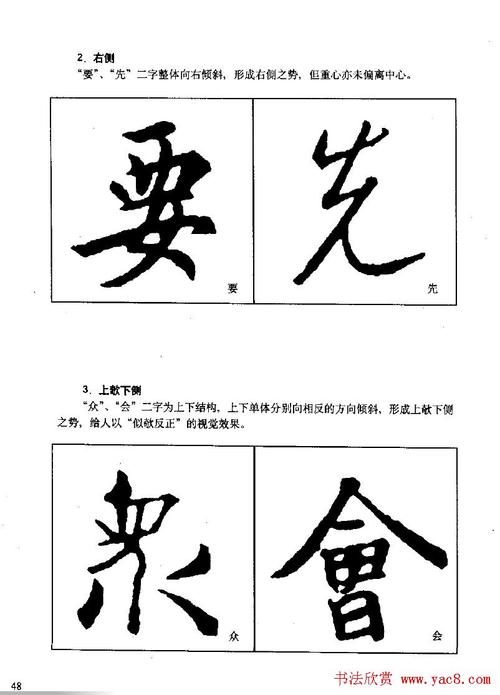 2. 右侧
“要”、“先”二字整体向右倾斜，形成右侧之势，但重心亦未偏离中心。
要 先
要 先
3. 上欹下侧
“众”、“会”二字为上下结构，上下单体分别向相反的方向倾斜，形成上欹下侧
之势，给人以“似欹反正”的视觉效果。
眾 會
众 会
48
书法欣赏 www.yac8.com